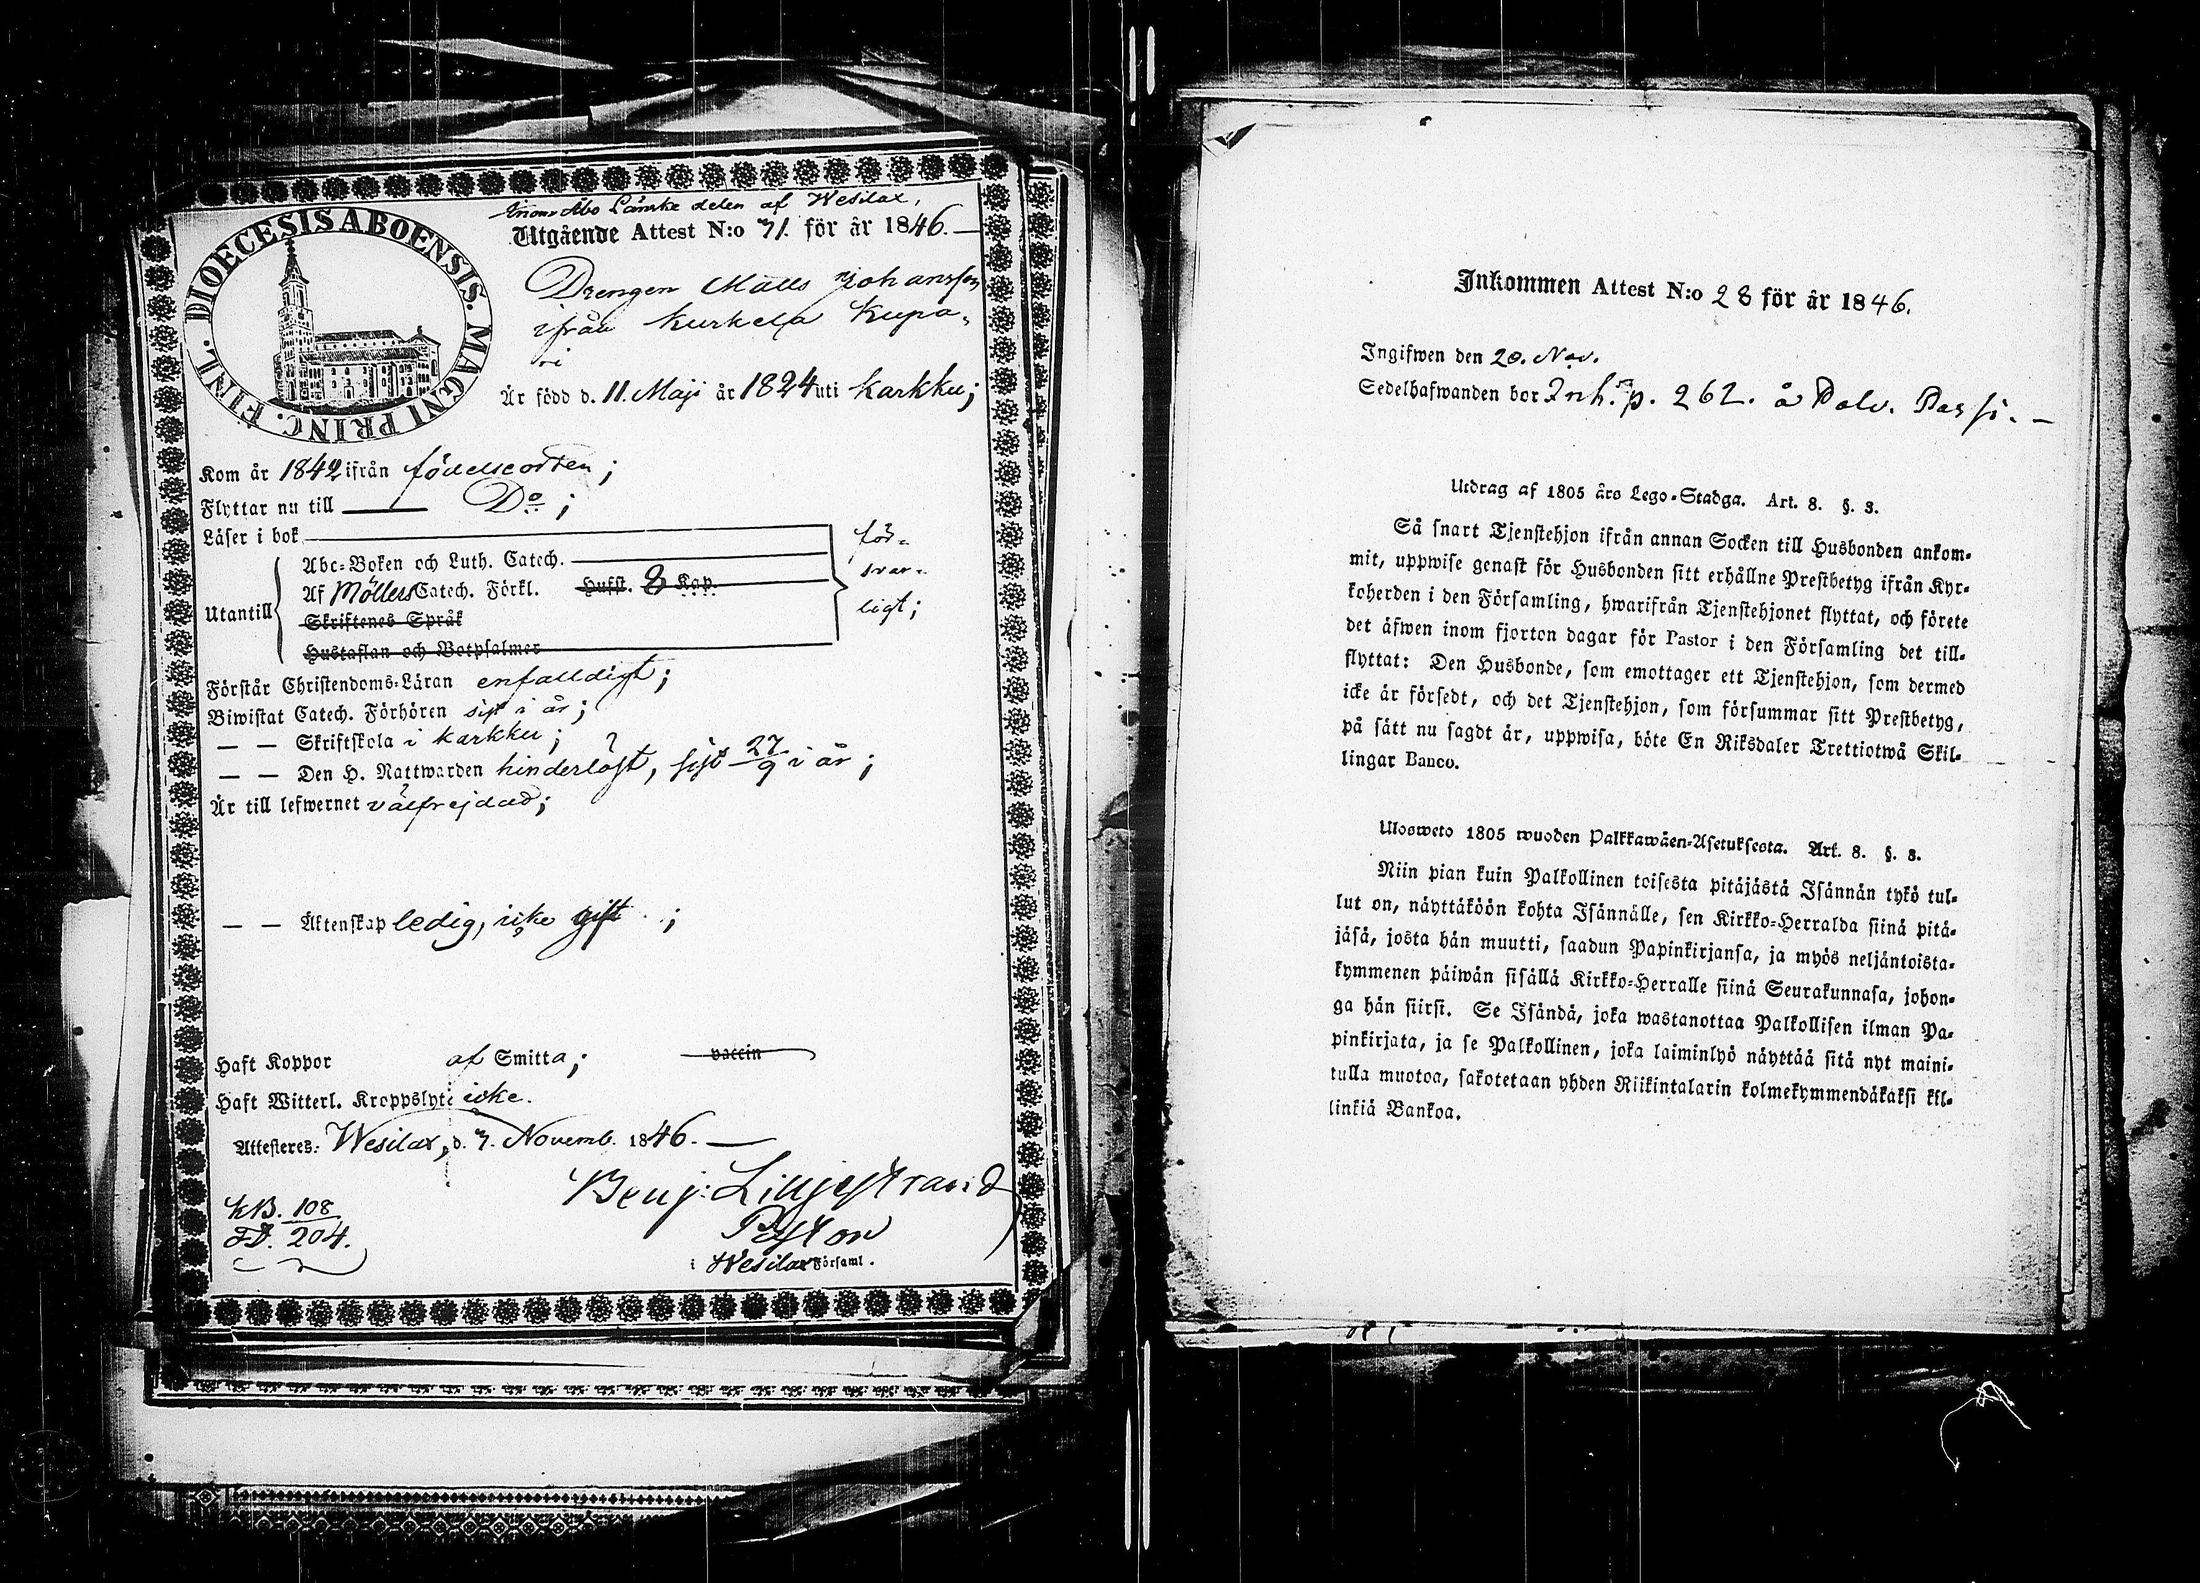 DIOECESIS ABOENSIS. MAGNI PRINC. FINL.
Inom Åbo Länske delen af Wesilax,
Utgående Attest N:o 71. för år 1846.
Drengen Matts Johansson
ifrån Kurkela Kupa-
ri
Är född d. 11. Maji år 1824 uti Karkku;
Kom år 1842 ifrån födelseorten;
Flyttar nu till — Do;
Läser i bok
Abc-Boken och Luth. Catech.
Af Möllers Catech. Förkl. Hufst. 8 Kap.
Utantill
Skriftenes Språk
Hustaflan och Botpsalmer
för-
svar-
ligt;
Förstår Christendoms-Läran enfaldigt;
Biwistat Catech. Förhören sist i år;
— — Skriftskola i Karkku;
— — Den H. Nattwarden hinderlöst, sist 27/9 i år;
Är till lefwernet välfrejdad;
— — Äktenskap ledig, icke gift;
Haft Koppor af Smitta; vaccin
Haft Witterl. Kroppslyte icke.
Attesteres: Wesilax, d. 7. Novemb. 1846.
Benj: Liljestrand
Pastor
i Wesilax Församl.
KB. 108
FD. 204.
Inkommen Attest N:o 28 för år 1846.
Ingifwen den 20. Nov.
Sedelhafwanden bor Inh. p. 262. å Palv. Passi.
Utdrag af 1805 års Lego-Stadga. Art. 8. §. 3.
Så snart Tjenstehjon ifrån annan Socken till Husbonden ankom-
mit, uppwise genast för Husbonden sitt erhållne Prestbetyg ifrån Kyr-
koherden i den Församling, hwarifrån Tjenstehjonet flyttat, och förete
det äfwen inom fjorton dagar för Pastor i den Församling det till-
flyttat: Den Husbonde, som emottager ett Tjenstehjon, som dermed
icke är försedt, och det Tjenstehjon, som försummar sitt Prestbetyg,
på sätt nu sagdt är, uppwisa, böte En Riksdaler Trettiotwå Skil-
lingar Banco.
Ulosweto 1805 wuoden Palkkawäen-Asetuksesta. Art. 8. §. 3.
Niin pian kuin Palkollinen toisesta pitäjästä Isännän tykö tul-
lut on, näyttäköön kohta Isännälle, sen Kirkko-Herralda siinä pitä-
jäsä, josta hän muutti, saadun Papinkirjansa, ja myös neljäntoista-
kymmenen päiwän sisällä Kirkko-Herralle siinä Seurakunnasa, johon-
ga hän siirsi. Se Isändä, joka wastanottaa Palkollisen ilman Pa-
pinkirjata, ja se Palkollinen, joka laiminlyö näyttää sitä nyt maini-
tulla muotoa, sakotetaan yhden Riikintalarin kolmekymmendäkaksi kil-
linkiä Bankoa.